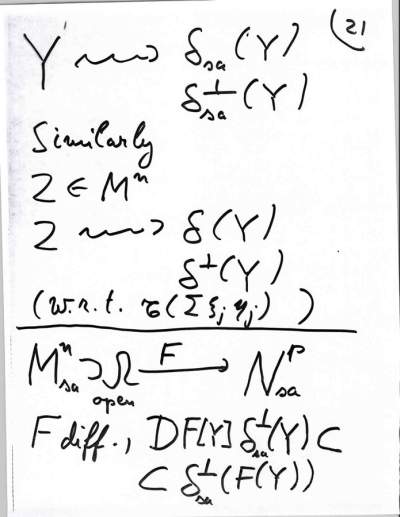 (21
Y ⟿ δ_sa(Y)
δ^⊥_sa(Y)
Similarly
Z ∈ M^n
Z ⟿ δ(Y)
δ^⊥(Y)
(w.r.t. τ(Σ ξ_j η_j) )
M^n_sa ⊃ Ω F⟶ N^p_sa
open
F diff., DF[Y] δ^⊥_sa(Y) ⊂
⊂ δ^⊥_sa(F(Y))